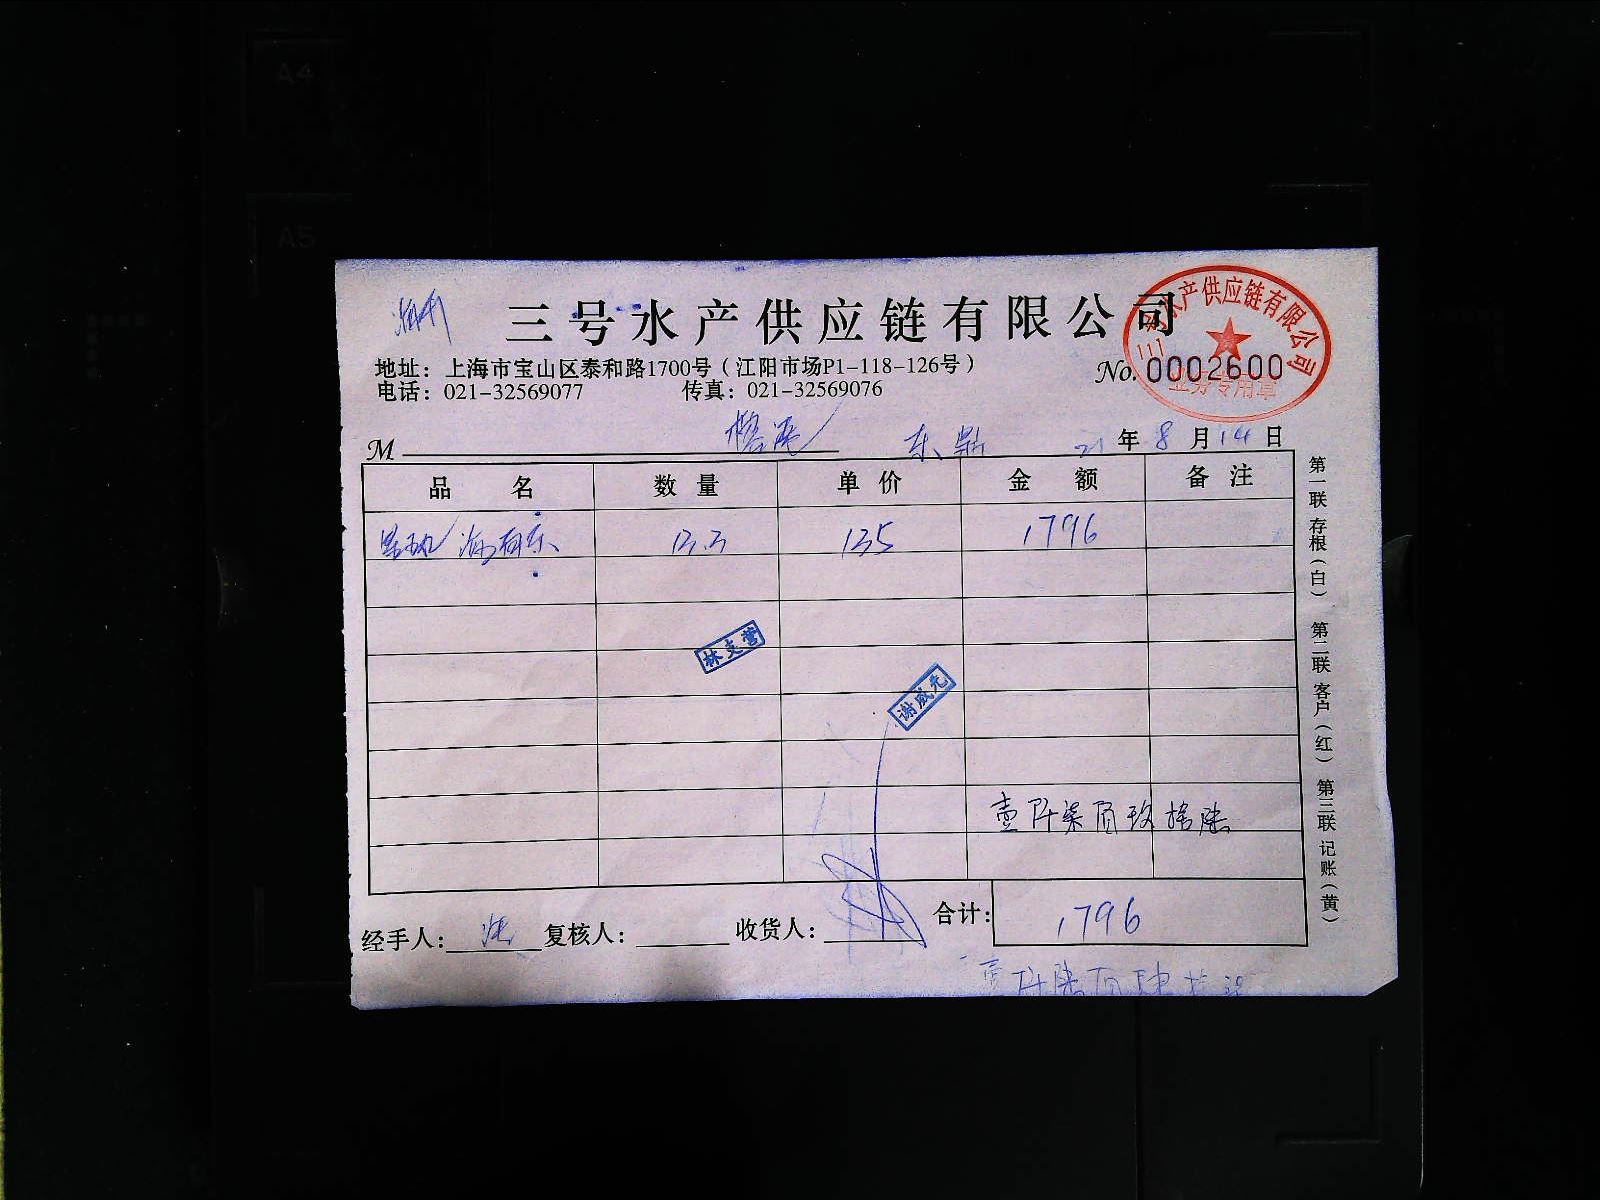 A4
A5
三号水产供应链有限公司
水产供应链有限公司
业务专用章
地址：上海市宝山区泰和路1700号（江阳市场P1-118-126号）
No. 0002600
电话：021-32569077 传真：021-32569076
M 东鼎 21年8月14日
品名 数量 单价 金额 备注
13.3 135 1796
林支营
谢成光
壹仟柒佰玖拾陆
合计： 1796
经手人： 复核人： 收货人：
第一联 存根（白） 第二联 客户（红） 第三联 记账（黄）